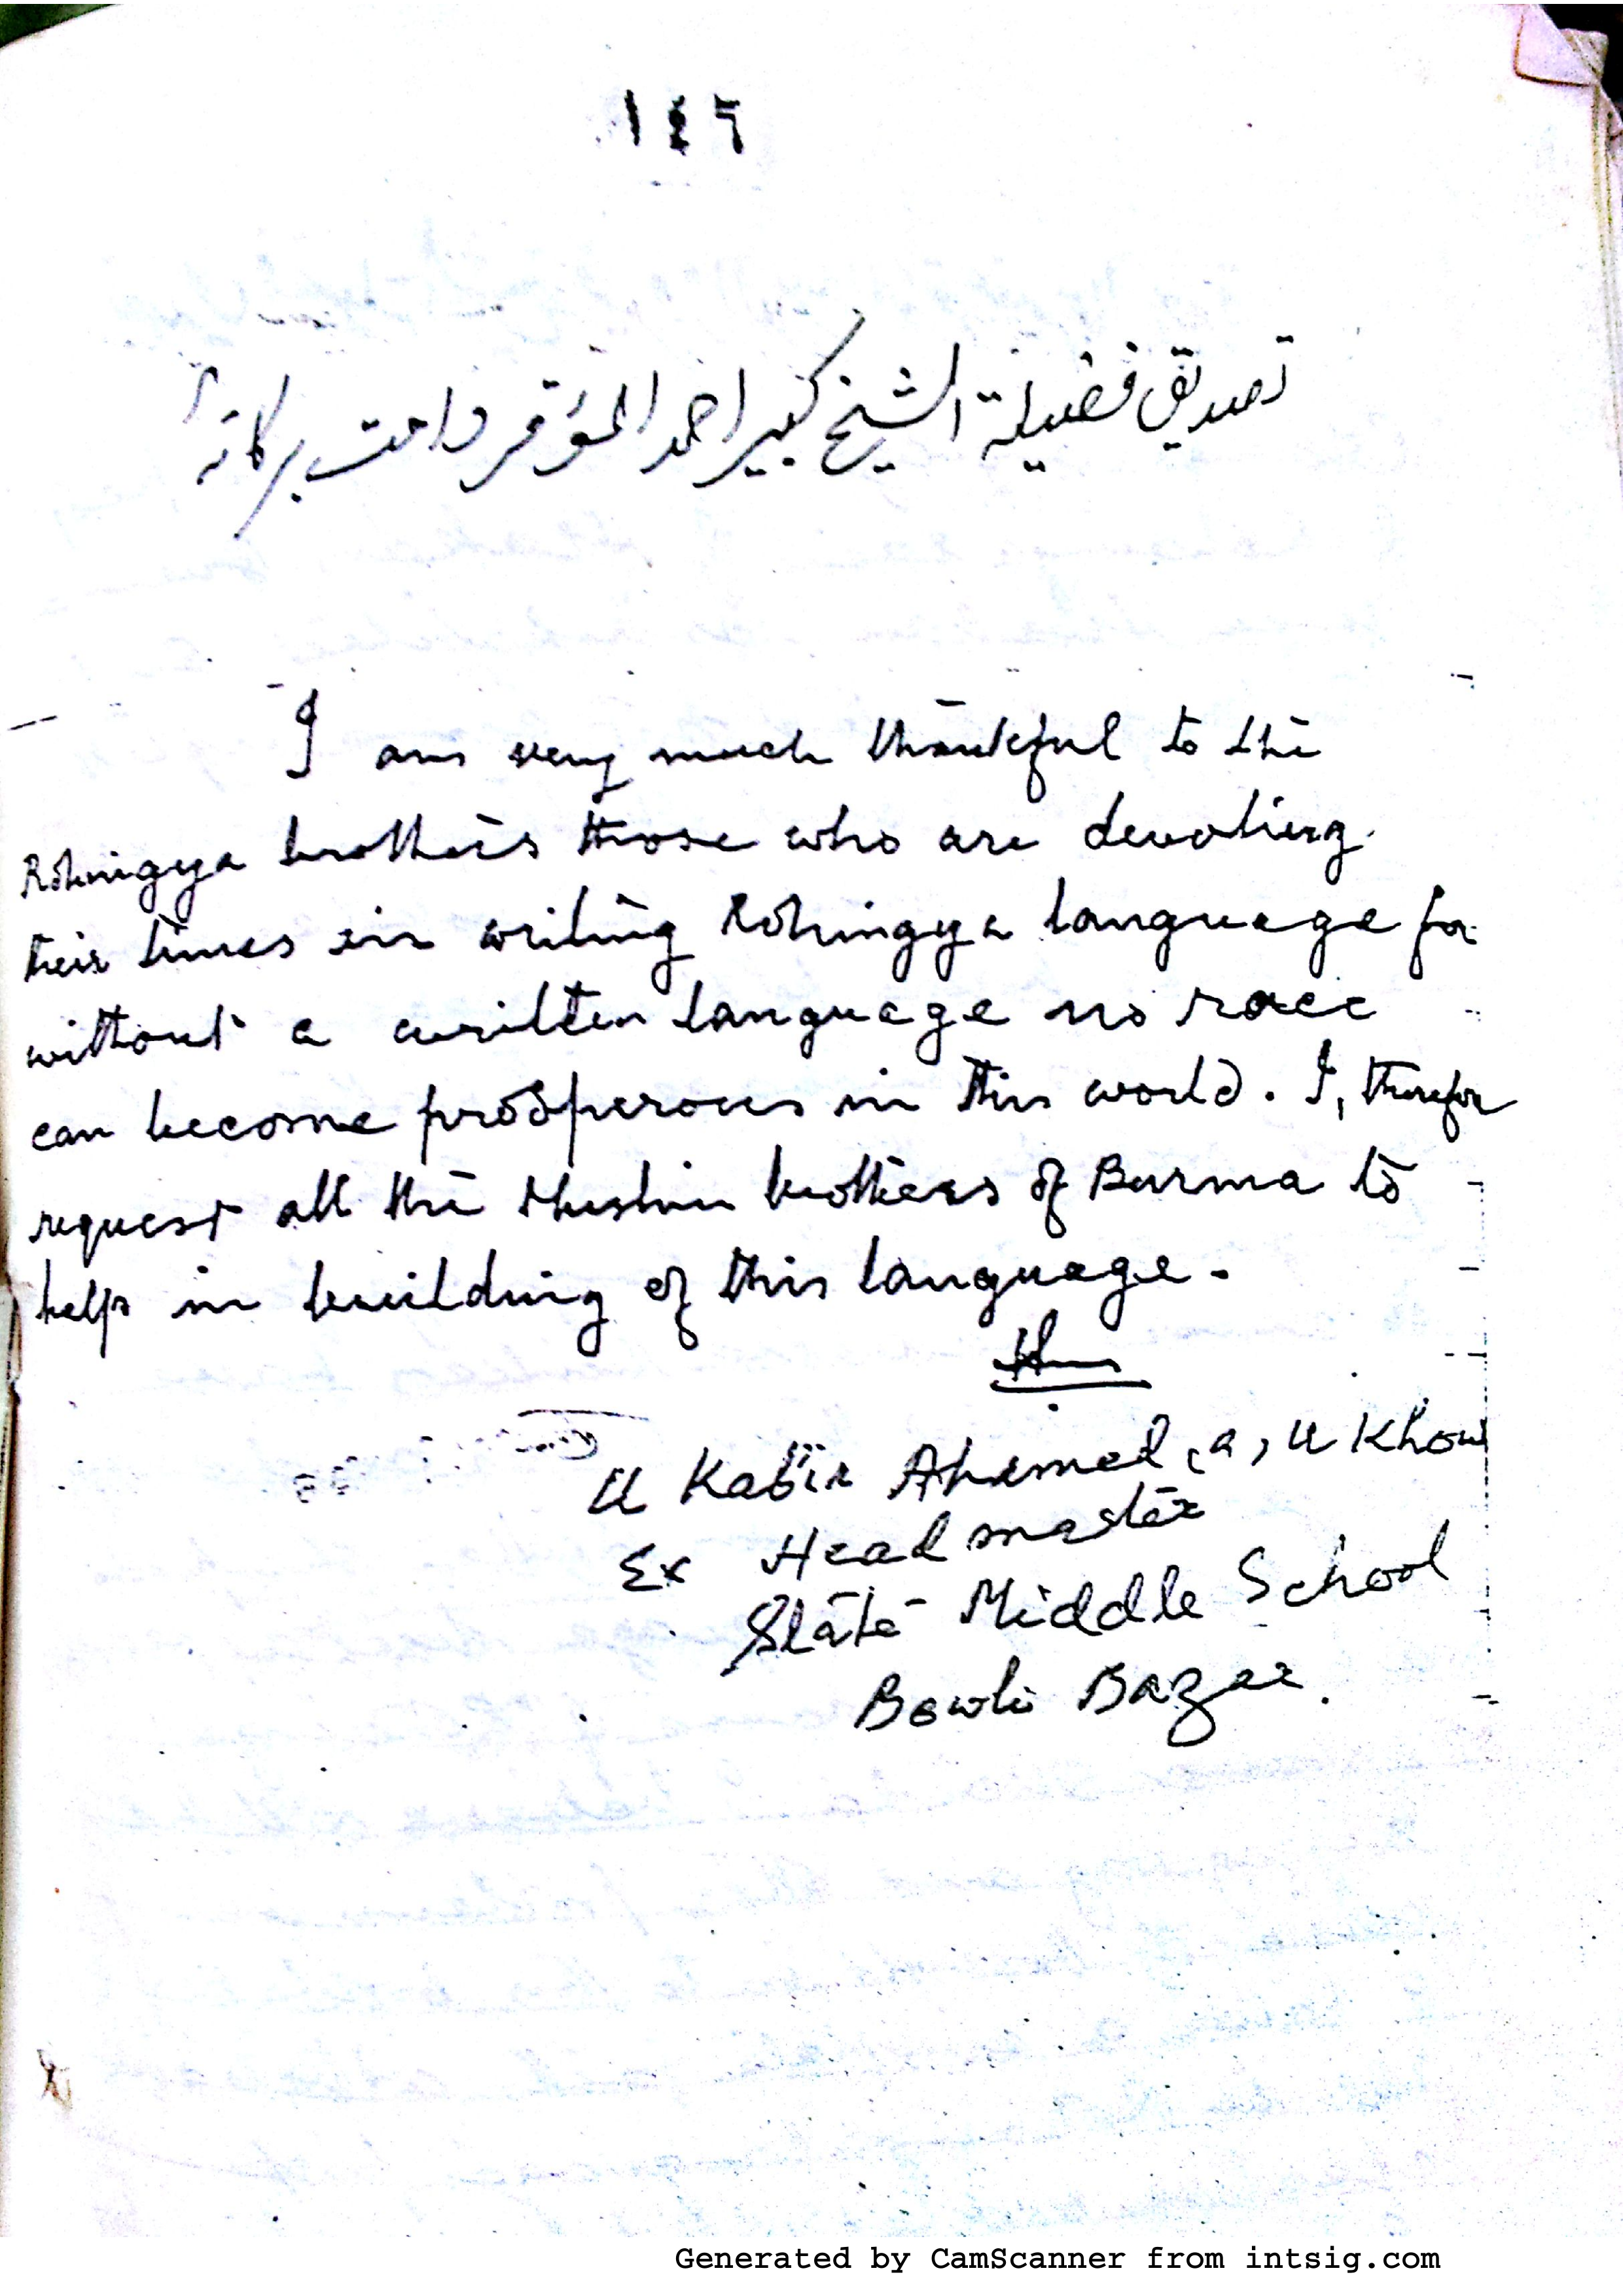 ١٤٦
تصديق فضيلة الشيخ كبير احمد المؤقر دامت بركاته
I am very much thankful to the
Rohingya brothers those who are devoting
their times in writing Rohingya language for
without a written language no race
can become prosperous in this world. I, therefor
request all the Muslim brothers of Burma to
help in building of this language.
U Kabir Ahamed (a) U Khow
Ex Head master
State Middle School
Bowli Bazar.
Generated by CamScanner from intsig.com